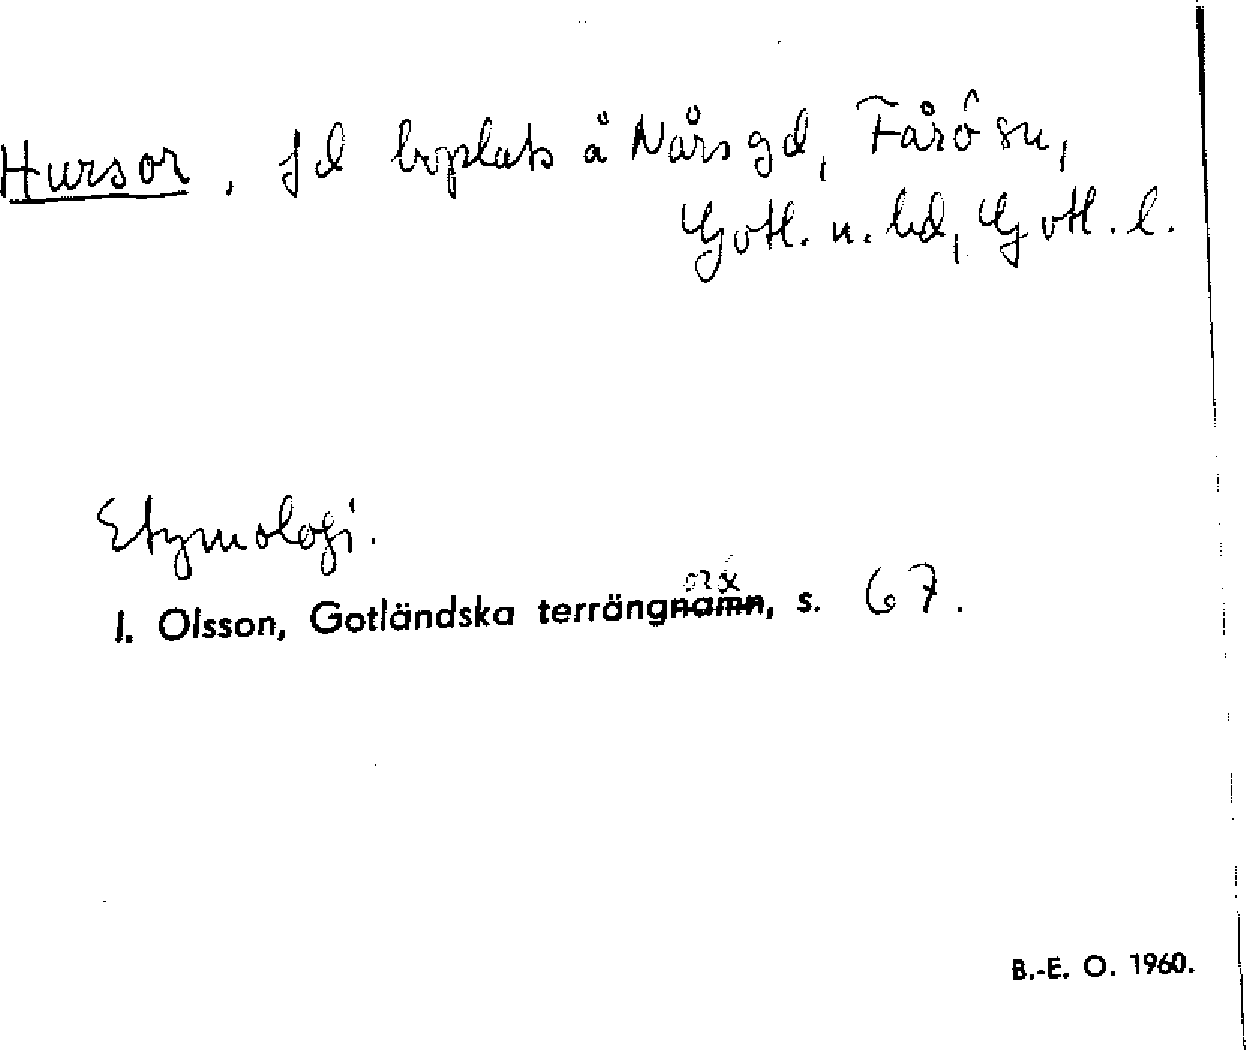 Hursor. fd boplats å Nårs gd, Fårö sn,
Gotl. n. hd, Gotl. l.
Etymologi.
ord
I. Olsson, Gotländska terrängnamn, s. 67.
B.-E. O. 1960.